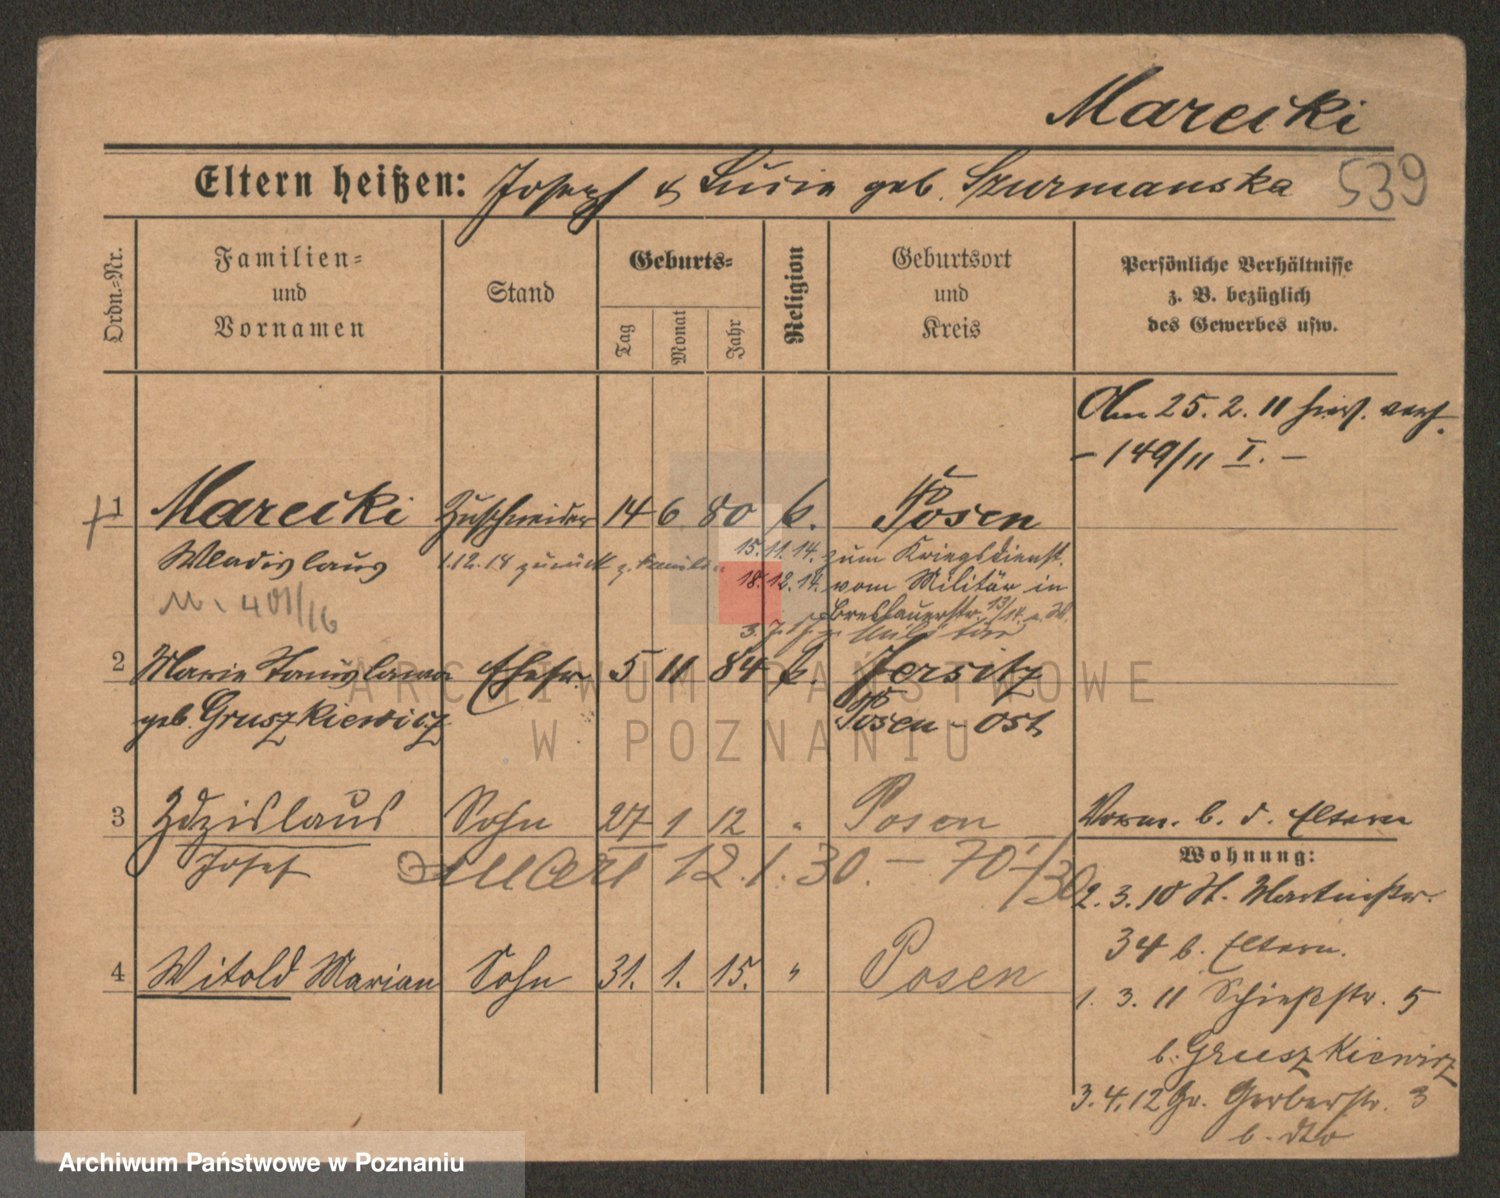 Marecki
Eltern heißen: Joseph & Lucie geb. Szurmanska 539
Ordn.=Nr.
Familien=
und
Vornamen
Stand
Geburts=
Tag
Monat
Jahr
Religion
Geburtsort
und
Kreis
Persönliche Verhältnisse
z. B. bezüglich
des Gewerbes usw.
Am 25. 2. 11 hies. verh.
- 149/11 I. -
1 Marecki Zuschneider 14 6 80 k. Posen
Wladislaus 1.12.14 zurück z. Familie 15.11.14. zum Kriegsdienst.
18.12.14. vom Militär in
401/16 Breslauerstr. 13/14
3. Militär
2 Marie Stanislawa Ehefr. 5 11 84 k. Jersitz
geb. Gruszkiewicz Posen-Ost
3 Zdzislaus Sohn 27 1 12 " Posen
Josef 12.1.30. - 70/30
Vorm. b. d. Eltern
Wohnung:
2. 3. 10 St. Martinstr.
34 b. Eltern.
4 Witold Marian Sohn 31. 1. 15. " Posen
1. 3. 11 Schießstr. 5
b. Gruszkiewicz
3. 4. 12 Gr. Gerberstr. 3
b. dto
ARCHIWUM PAŃSTWOWE
W POZNANIU
Archiwum Państwowe w Poznaniu